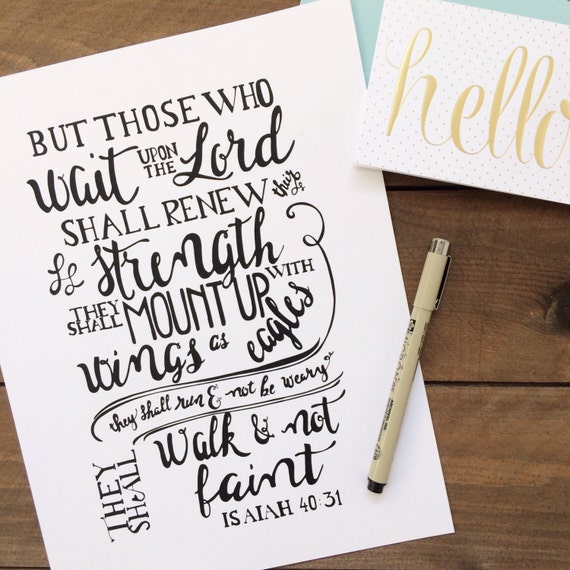 BUT THOSE WHO
wait UPON THE Lord
SHALL RENEW their
strength
THEY SHALL MOUNT UP WITH
wings as eagles
they shall run & not be weary
THEY SHALL walk & not
faint
ISAIAH 40:31
hello